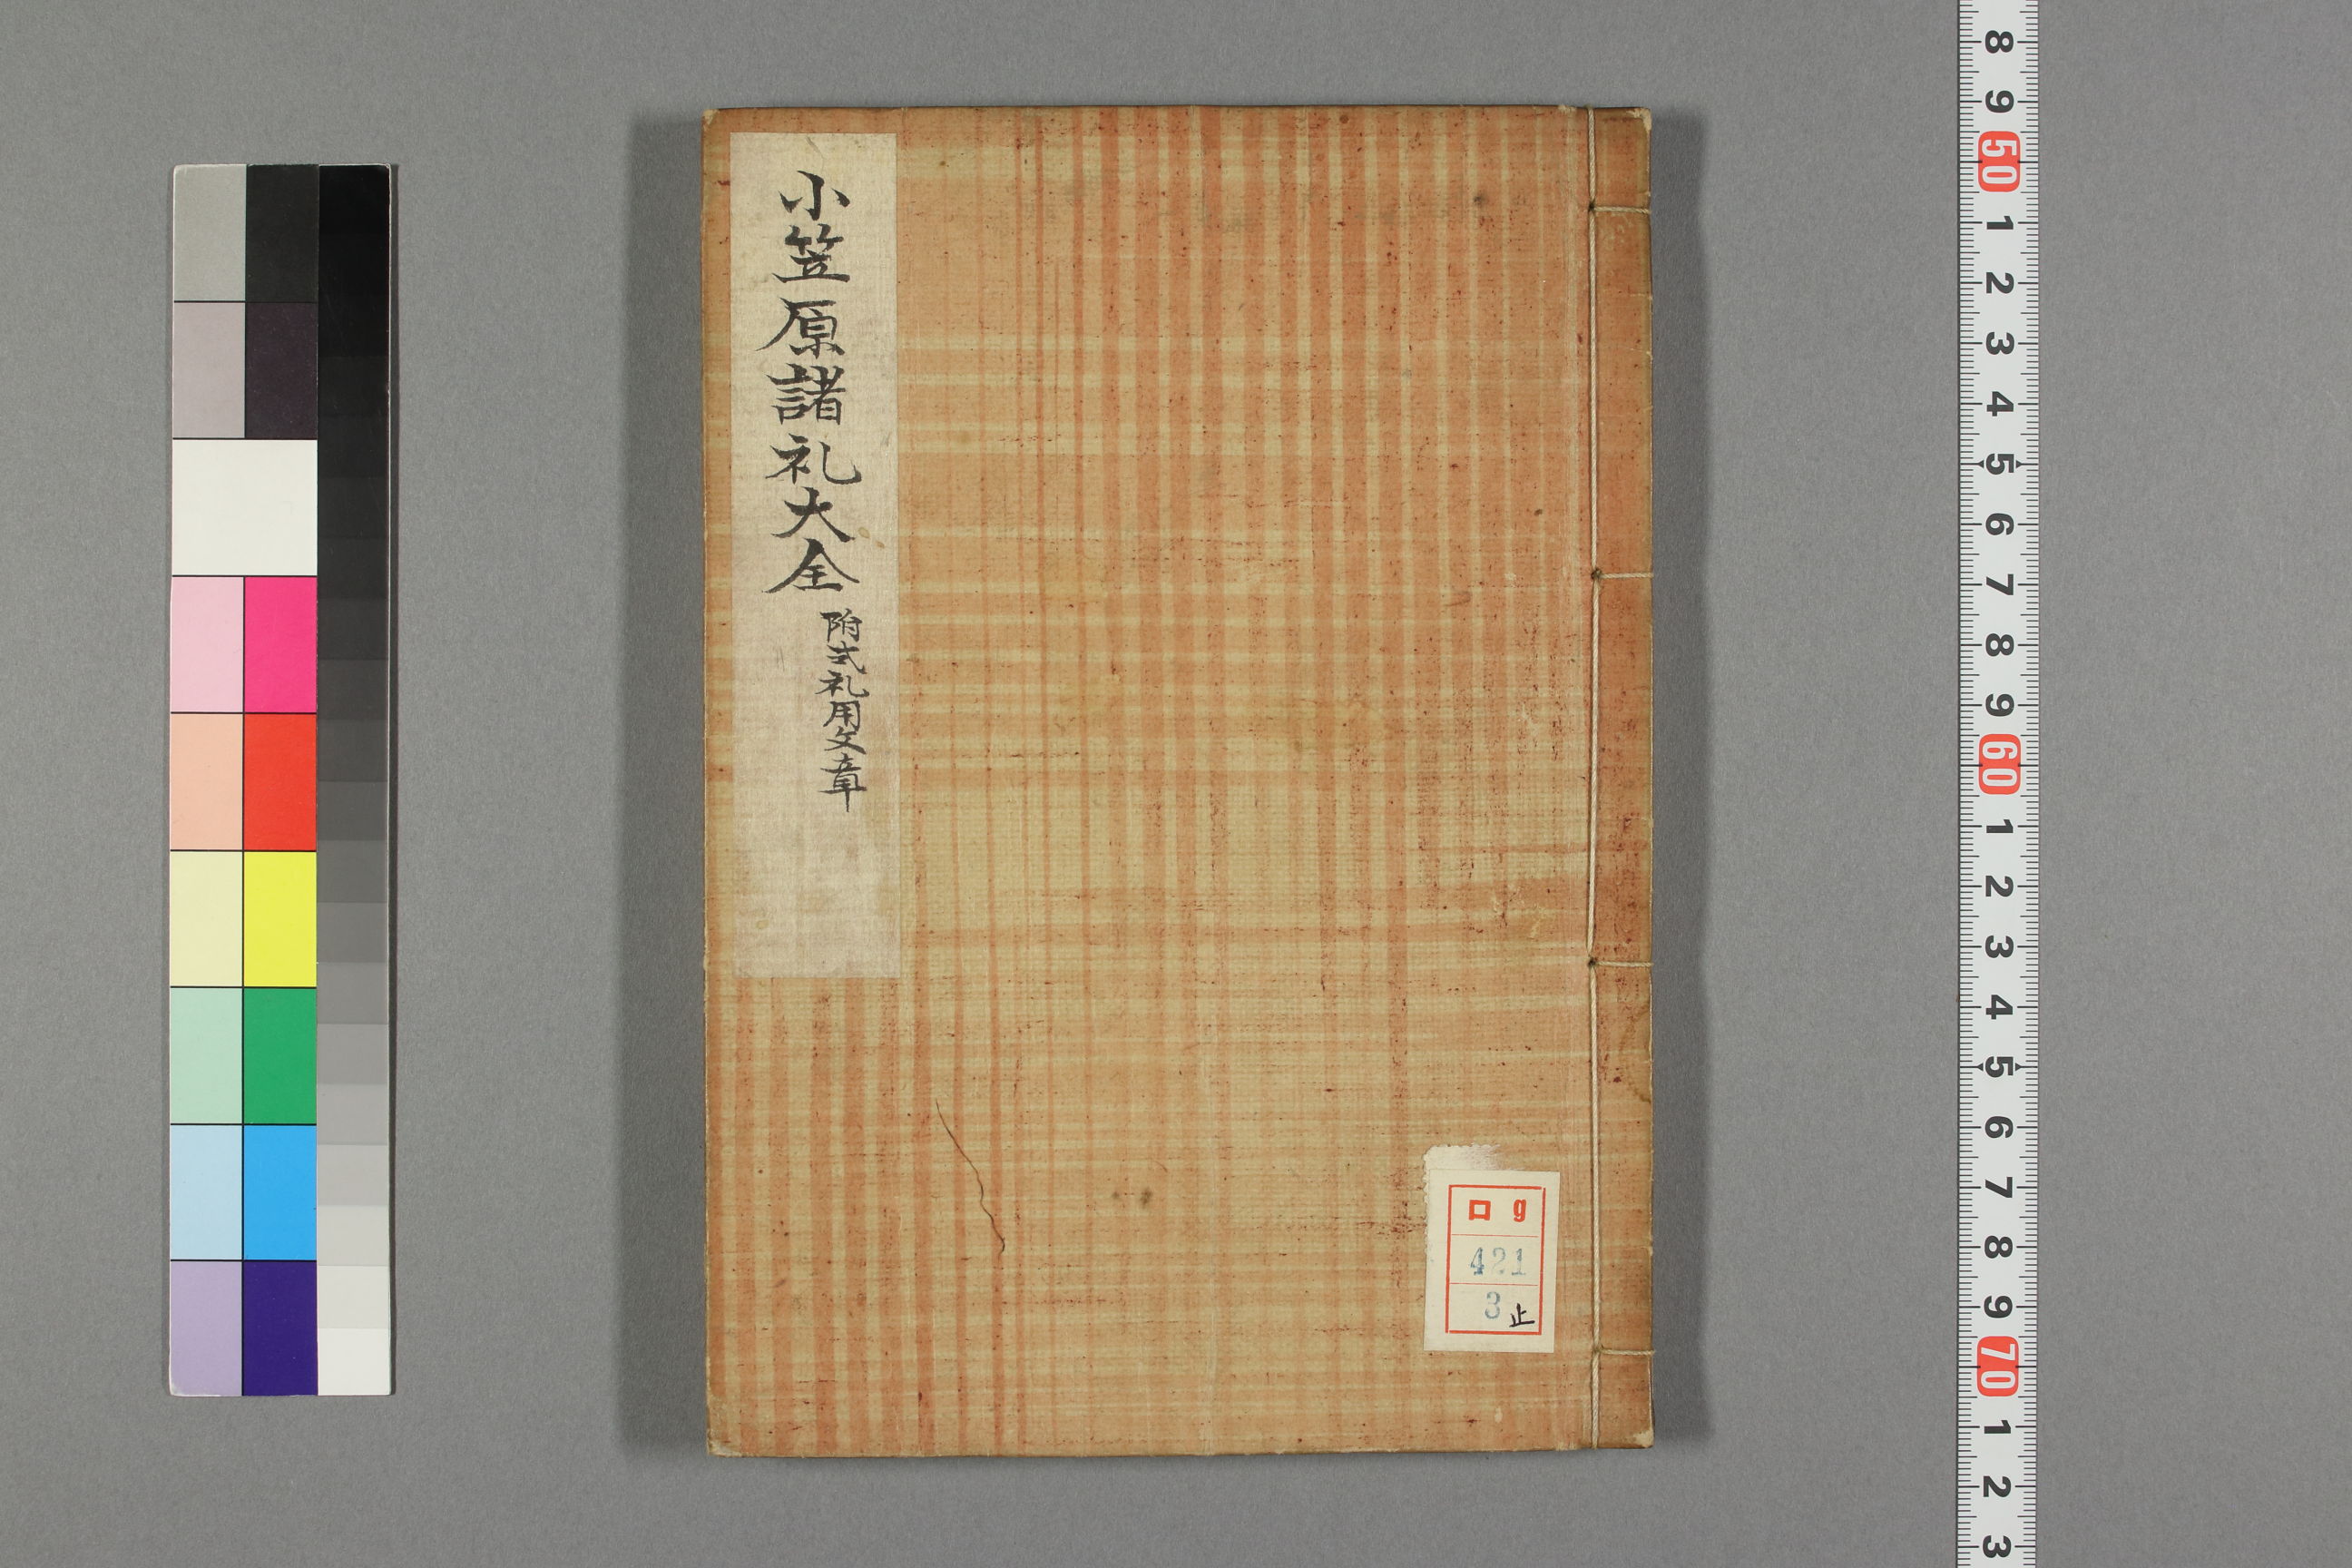 小笠原諸礼大全
附式礼用文章
ロ g
421
3止
8
9
50
1
2
3
4
5
6
7
8
9
60
1
2
3
4
5
6
7
8
9
70
1
2
3